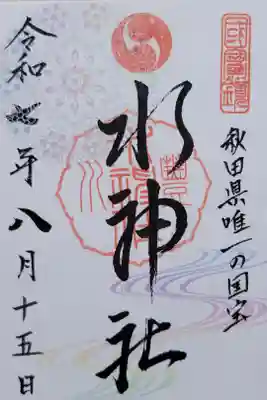 秋田県唯一の国宝
水神社
令和七年八月十五日